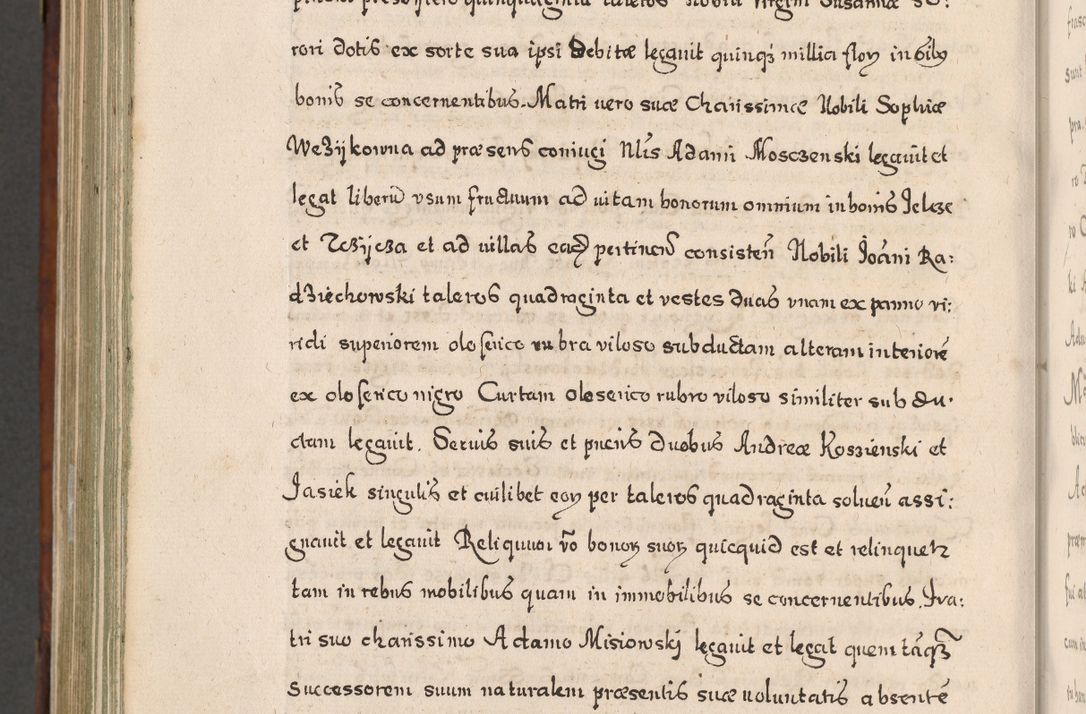 rori dotis ex sorte sua ipsi debitæ legauit quinqȝ millia floꝝ in oibꝰ
bonis se concernentibus. Matri uero suæ Charissimæ Nobili Sophiæ
Węzijkowna ad præsens coniugi Nlis Adami Mosczenski legauit et
legat liberū vsum fructuum ad uitam bonorum omnium in bonis Jelcze
et Rczijcza et ad uillas easd pertinens consisteñ Nobili Joāni Ra:
dziechowski taleros quadraginta et vestes duas vnam ex panno vi:
ridi superiorem oloserico rubra viloso subductam alteram interiorē
ex oloserico nigro Curtam oloserico rubro viloso similiter sub du:
ctam legauit. Seruis suis et pueris duobus Andreæ Koszienski et
Jasiek singulis et cuilibet eoꝝ per taleros quadraginta solueñ assi:
gnauit et legauit Reliquum vō bonoꝝ suoꝝ quicquid est et relinquetr
tam in rebus mobilibus quam in immobilibus se concernentibus. Fra:
tri suo charissimo Adamo Misiowskj legauit et legat quem tāqȝ
Successorem suum naturalem præsentis suæ uoluntatis absentē